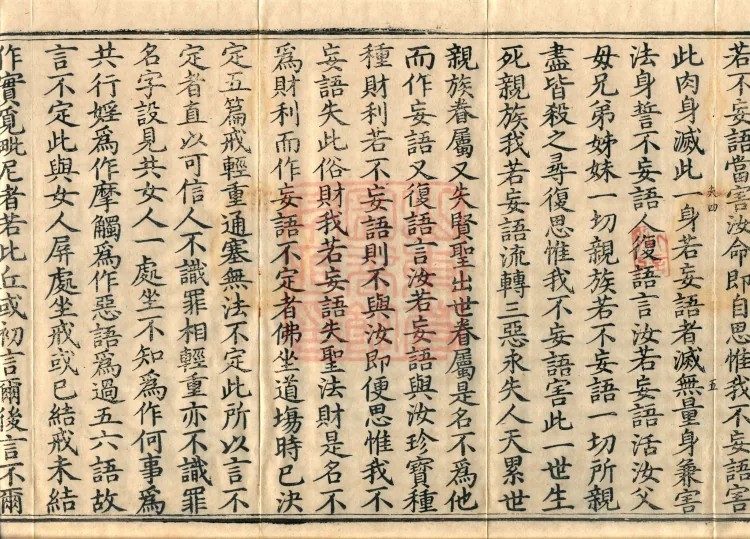 若不妄語當害汝命即自思惟我不妄語害
此肉身滅此一身若妄語者滅無量身兼害
法身誓不妄語人復語言汝若妄語活汝父
母兄弟姊妹一切親族若不妄語一切所親
盡皆殺之尋復思惟我不妄語害此一世生
死親族我若妄語流轉三惡永失人天累世
親族眷屬又失賢聖出世眷屬是名不爲他
而作妄語又復語言汝若妄語與汝珍寶種
種財利若不妄語則不與汝即便思惟我不
妄語失此俗財我若妄語失聖法財是名不
爲財利而作妄語不定者佛坐道場時已決
定五篇戒輕重通塞無法不定此所以言不
定者直以可信人不識罪相輕重亦不識罪
名字設見共女人一處坐不知爲作何事爲
共行婬爲作摩觸爲作惡語爲過五六語故
言不定此與女人屏處坐戒或已結戒未結
作實覓毗尼者若比丘或初言爾後言不爾
五